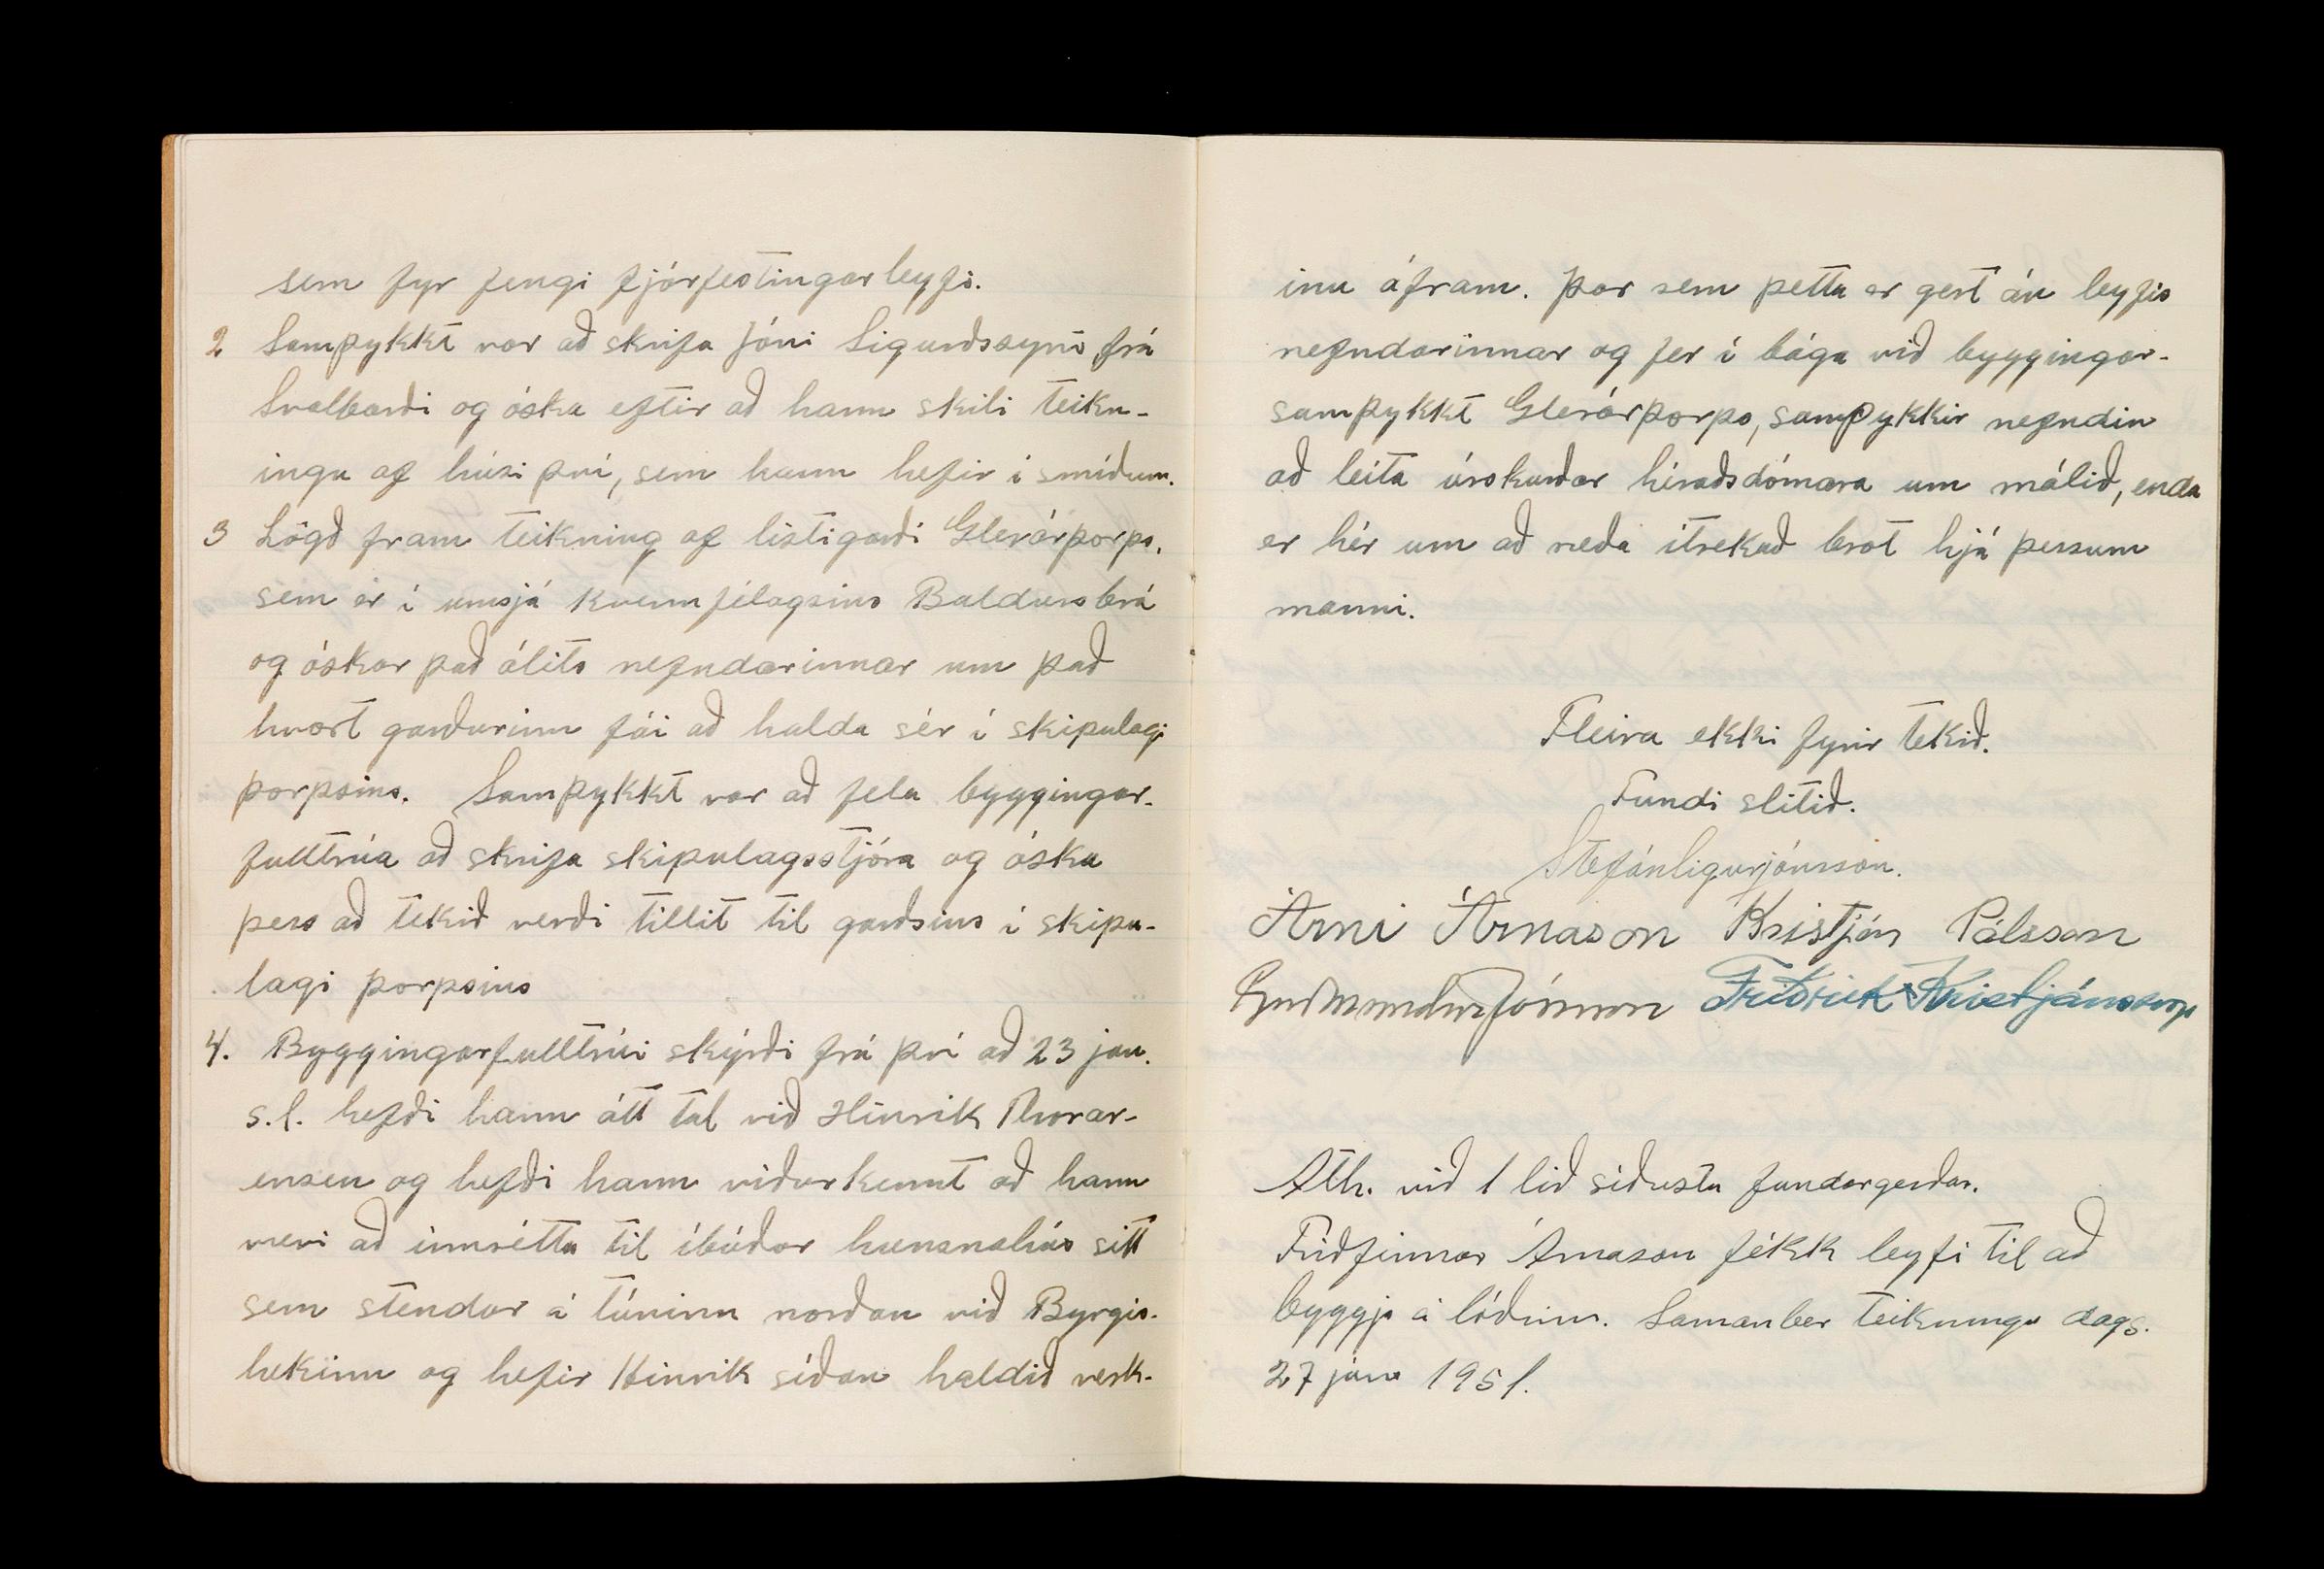 sem fyr fengi fjárfestingarleyfi.
2 Samþykkt var að skrifa Jóni Sigurðssyni frá
Svalbarði og óska eftir að hann skili teikn-
ingu af húsi því, sem hann hefir í smíðum.
3 Lögð fram teikning af listigarði Glerárþorps,
sem er í umsjá kvennfélagsins Baldursbrá
og óskar það álits nefndarinnar um það
hvort garðurinn fái að halda sér í skipulagi
þorpsins. Samþykkt var að fela byggingar-
fulltrúa að skrifa skipulagsstjóra og óska
þess að tekið verði tillit til garðsins í skipu-
lagi þorpsins
4. Byggingarfulltrúi skýrði frá því að 23 jan.
s.l. hefði hann átt tal við Hinrik Thorar-
ensen og hefði hann viðurkennt að hann
væri að innrétta til íbúðar hænsnahús sitt
sem stendur á túninu norðan við Byrgis-
lækinn og hefir Hinrik síðan haldið verk-
inu áfram. Þar sem þetta er gert án leyfis
nefndarinnar og fer í bága við byggingar-
samþykkt Glerárþorps, samþykkir nefndin
að leita úrskurðar héraðsdómara um málið, enda
er hér um að ræða ítrekað brot hjá þessum
manni.
Fleira ekki fyrir tekið.
Fundi slitið.
Stefán Sigurjónsson.
Árni Árnason Kristján Pálsson
Guðmundur Jónsson Friðrik Kristjánsson
Ath. við 1 lið síðustu fundargerðar.
Friðfinnur Árnason fékk leyfi til að
byggja á lóðinni. Samanber teikningu dags.
27 júní 1951.